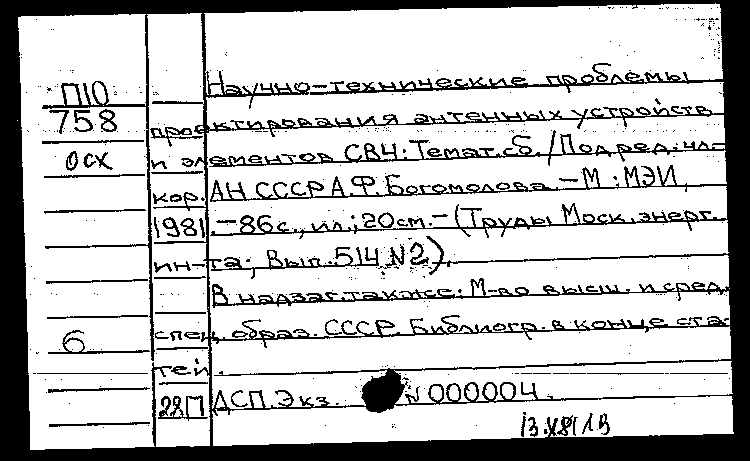 П10
758
осх
6
Научно-технические проблемы
проектирования антенных устройств
и элементов СВЧ: Темат.сб./Под ред. чл.-
кор. АН СССР А.Ф. Богомолова. -М: МЭИ,
1981. -86с., ил.; 20см. -(Труды Моск. энерг.
ин-та; Вып. 514 N2).
В надзаг. также: М-во высш. и сред.
спец. образ. СССР. Библиогр. в конце ста-
тей.
28П ДСП. Экз. N 000004.